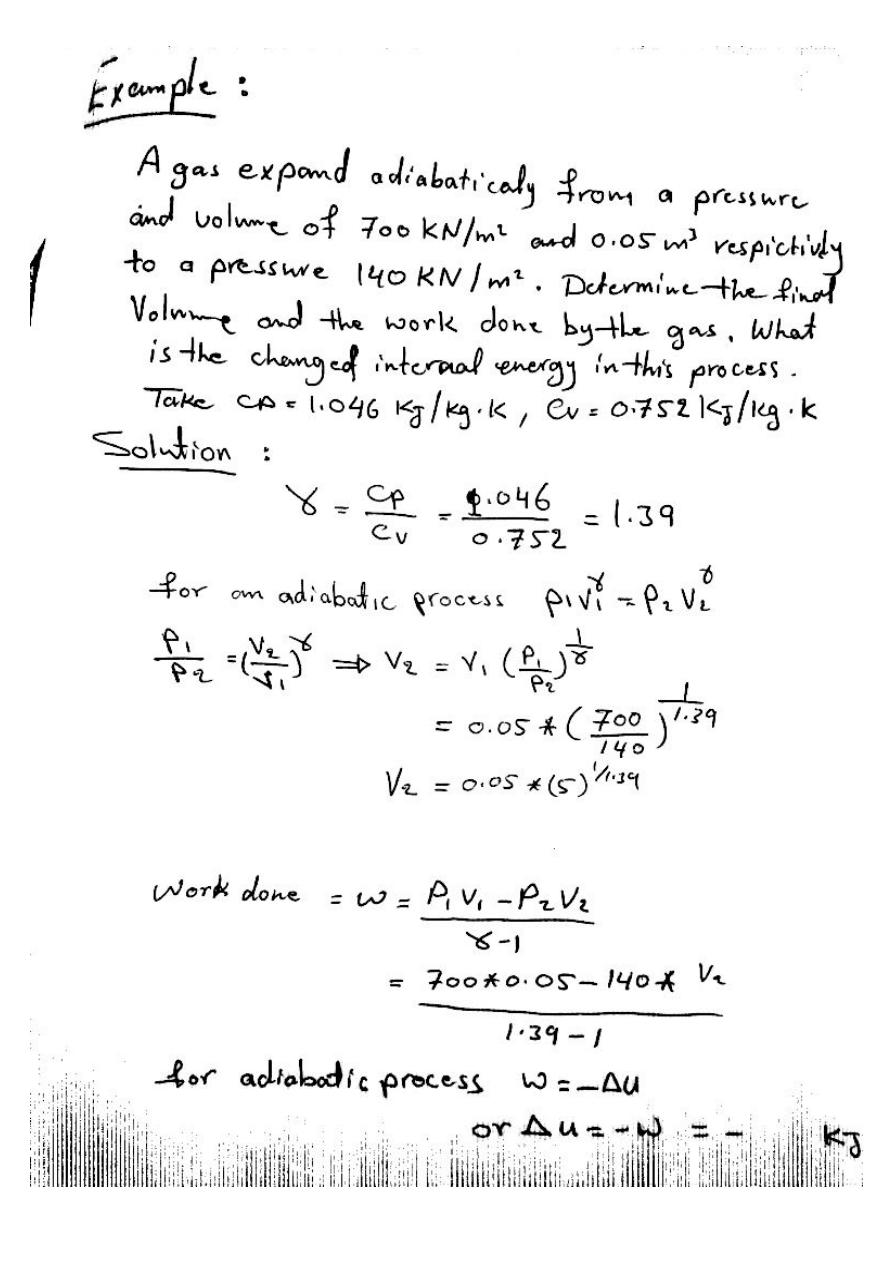 Example :
A gas expand adiabaticaly from a pressure
and volume of 700 KN/m² and 0.05 m³ respictivly
to a pressure 140 KN/m². Determine the final
Volume and the work done by the gas. What
is the changed internal energy in this process.
Take CP = 1.046 KJ/kg.k, Cv = 0.752 KJ/kg.k
Solution :
γ = CP/Cv = 1.046/0.752 = 1.39
for an adiabatic process P1V1^γ = P2V2^γ
P1/P2 = (V2/V1)^γ ⇒ V2 = V1 (P1/P2)^1/γ
= 0.05 * (700/140)^1/1.39
V2 = 0.05 * (5)^1/1.39
Work done = W = P1V1 - P2V2 / γ-1
= 700*0.05 - 140* V2 / 1.39 - 1
for adiabatic process W = -ΔU
or ΔU = -W = - KJ